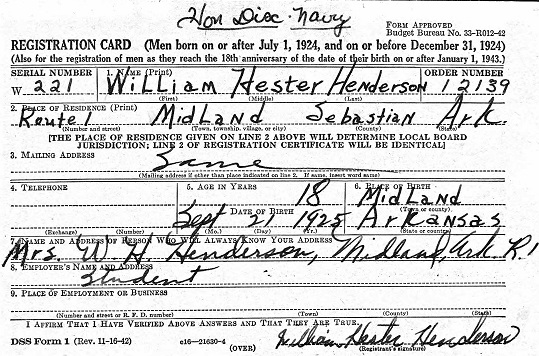 Hon Disc. Navy
FORM APPROVED
Budget Bureau No. 33-R012-42
REGISTRATION CARD (Men born on or after July 1, 1924, and on or before December 31, 1924)
(Also for the registration of men as they reach the 18th anniversary of the date of their birth on or after January 1, 1943.)
SERIAL NUMBER 1. NAME (Print) ORDER NUMBER
W 221 William Hester Henderson 12139
(First) (Middle) (Last)
2. PLACE OF RESIDENCE (Print)
Route 1 Midland Sebastian Ark.
(Number and street) (Town, township, village, or city) (County) (State)
[THE PLACE OF RESIDENCE GIVEN ON LINE 2 ABOVE WILL DETERMINE LOCAL BOARD
JURISDICTION; LINE 2 OF REGISTRATION CERTIFICATE WILL BE IDENTICAL]
3. MAILING ADDRESS
Same
(Mailing address if other than place indicated on line 2. If same, insert word same)
4. TELEPHONE 5. AGE IN YEARS 6. PLACE OF BIRTH
18 Midland
DATE OF BIRTH (Town or county)
Sept 21 1925 Arkansas
(Exchange) (Number) (Mo.) (Day) (Yr.) (State or country)
7. NAME AND ADDRESS OF PERSON WHO WILL ALWAYS KNOW YOUR ADDRESS
Mrs. W. H. Henderson, Midland, Ark. R 1
8. EMPLOYER'S NAME AND ADDRESS
Student
9. PLACE OF EMPLOYMENT OR BUSINESS
(Number and street or R. F. D. number) (Town) (County) (State)
I AFFIRM THAT I HAVE VERIFIED ABOVE ANSWERS AND THAT THEY ARE TRUE.
DSS Form 1 (Rev. 11-16-42) c16—21630-4 William Hester Henderson
(OVER) (Registrant's signature)